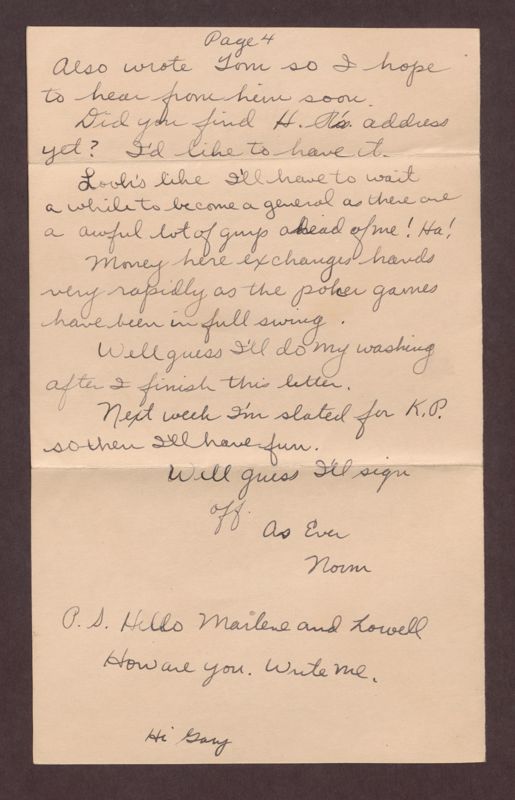 Page 4
Also wrote Tom so I hope
to hear from him soon.
Did you find H. R's. address
yet? I'd like to have it.
Looh's like I'll have to wait
a while to become a general as there are
a awful lot of guys ahead of me! Ha!
Money here exchanges hands
very rapidly as the poker games
have been in full swing.
Well guess I'll do my washing
after I finish this letter.
Next week I'm slated for K.P.
so then I'll have fun.
Well guess I'll sign
off.
As Ever
Norm
P.S. Hello Marlene and Lowell
How are you. Write me.
Hi Gary